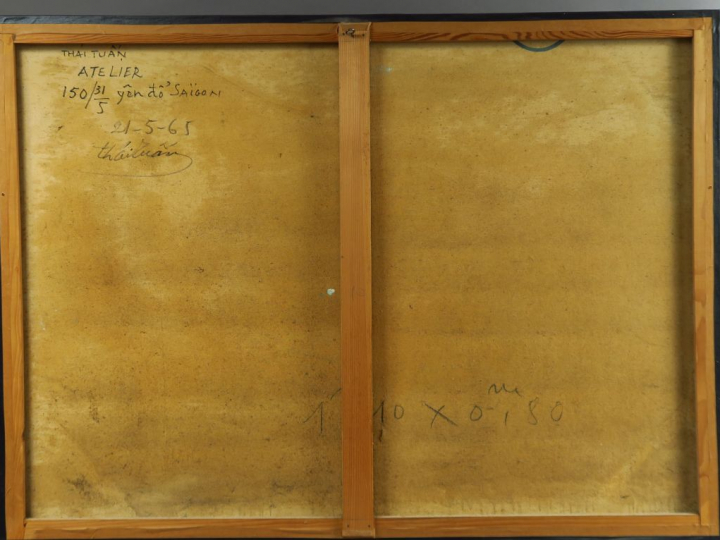 THÁI TUẤN
ATELIER
150/31/5 yên đổ SAÏGON
21-5-65
tháituấn
1 10 x 0, 80